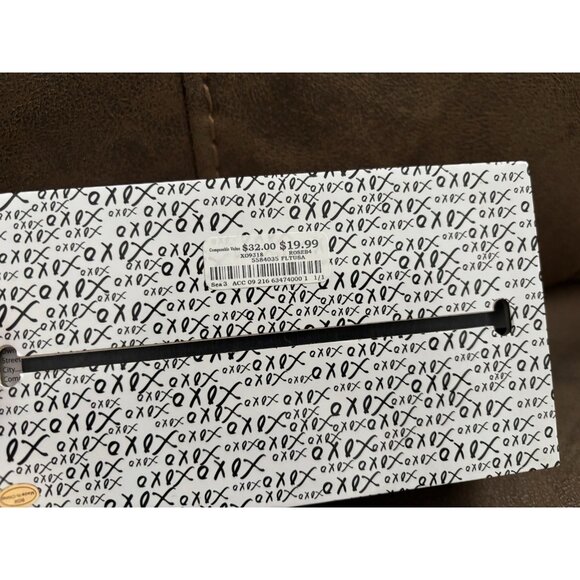 Comparable Value $32.00 $19.99
XO9318 ROSEB4
5584035 FLTUSA
Sea 3 ACC 09 216 63474000 1 1/1
Street
City
Com
BOX
Made in China